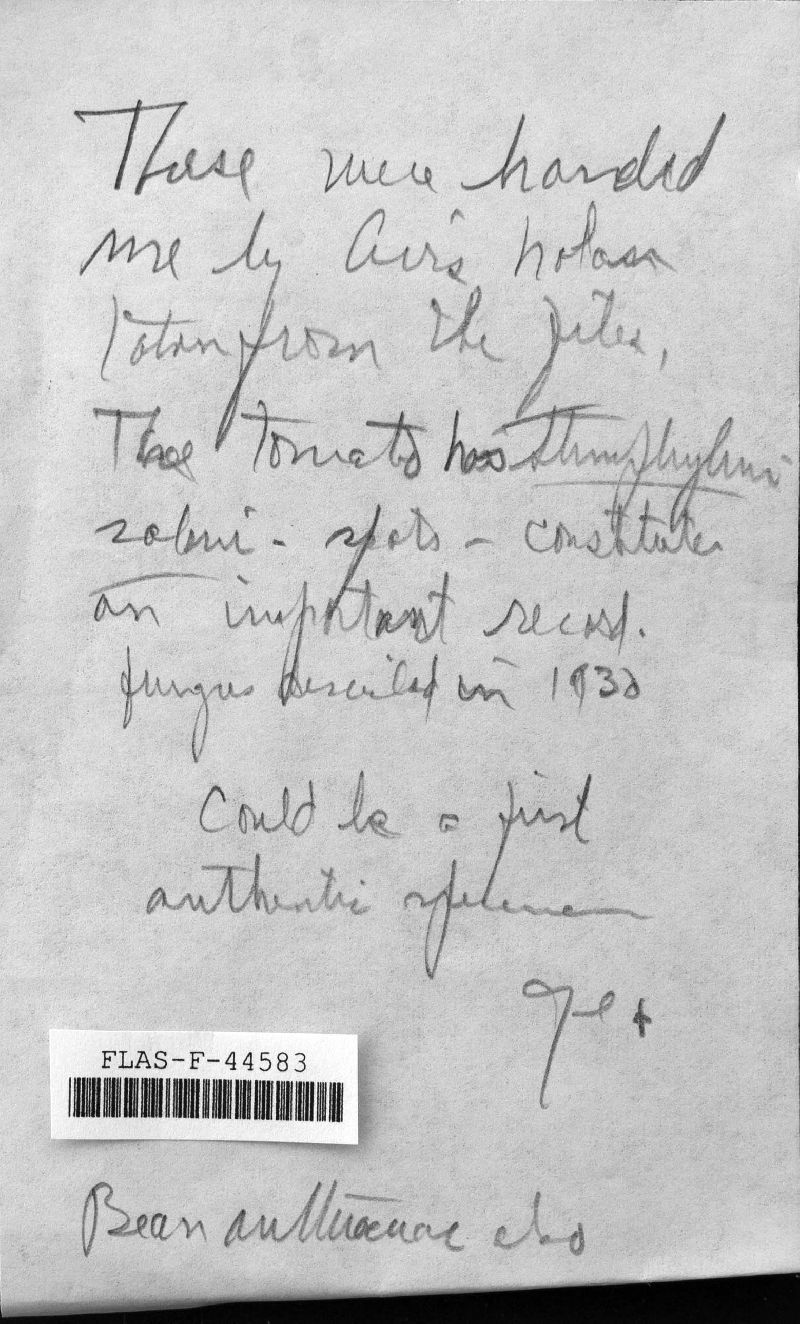 These were handed
me by Avis Nolan
taken from the files,
The tomato has Stemphylium
solani - spots - constitutes
an important record.
fungus described in 1930
Could be a first
authentic specimen
FLAS-F-44583
Bean anthracnose also